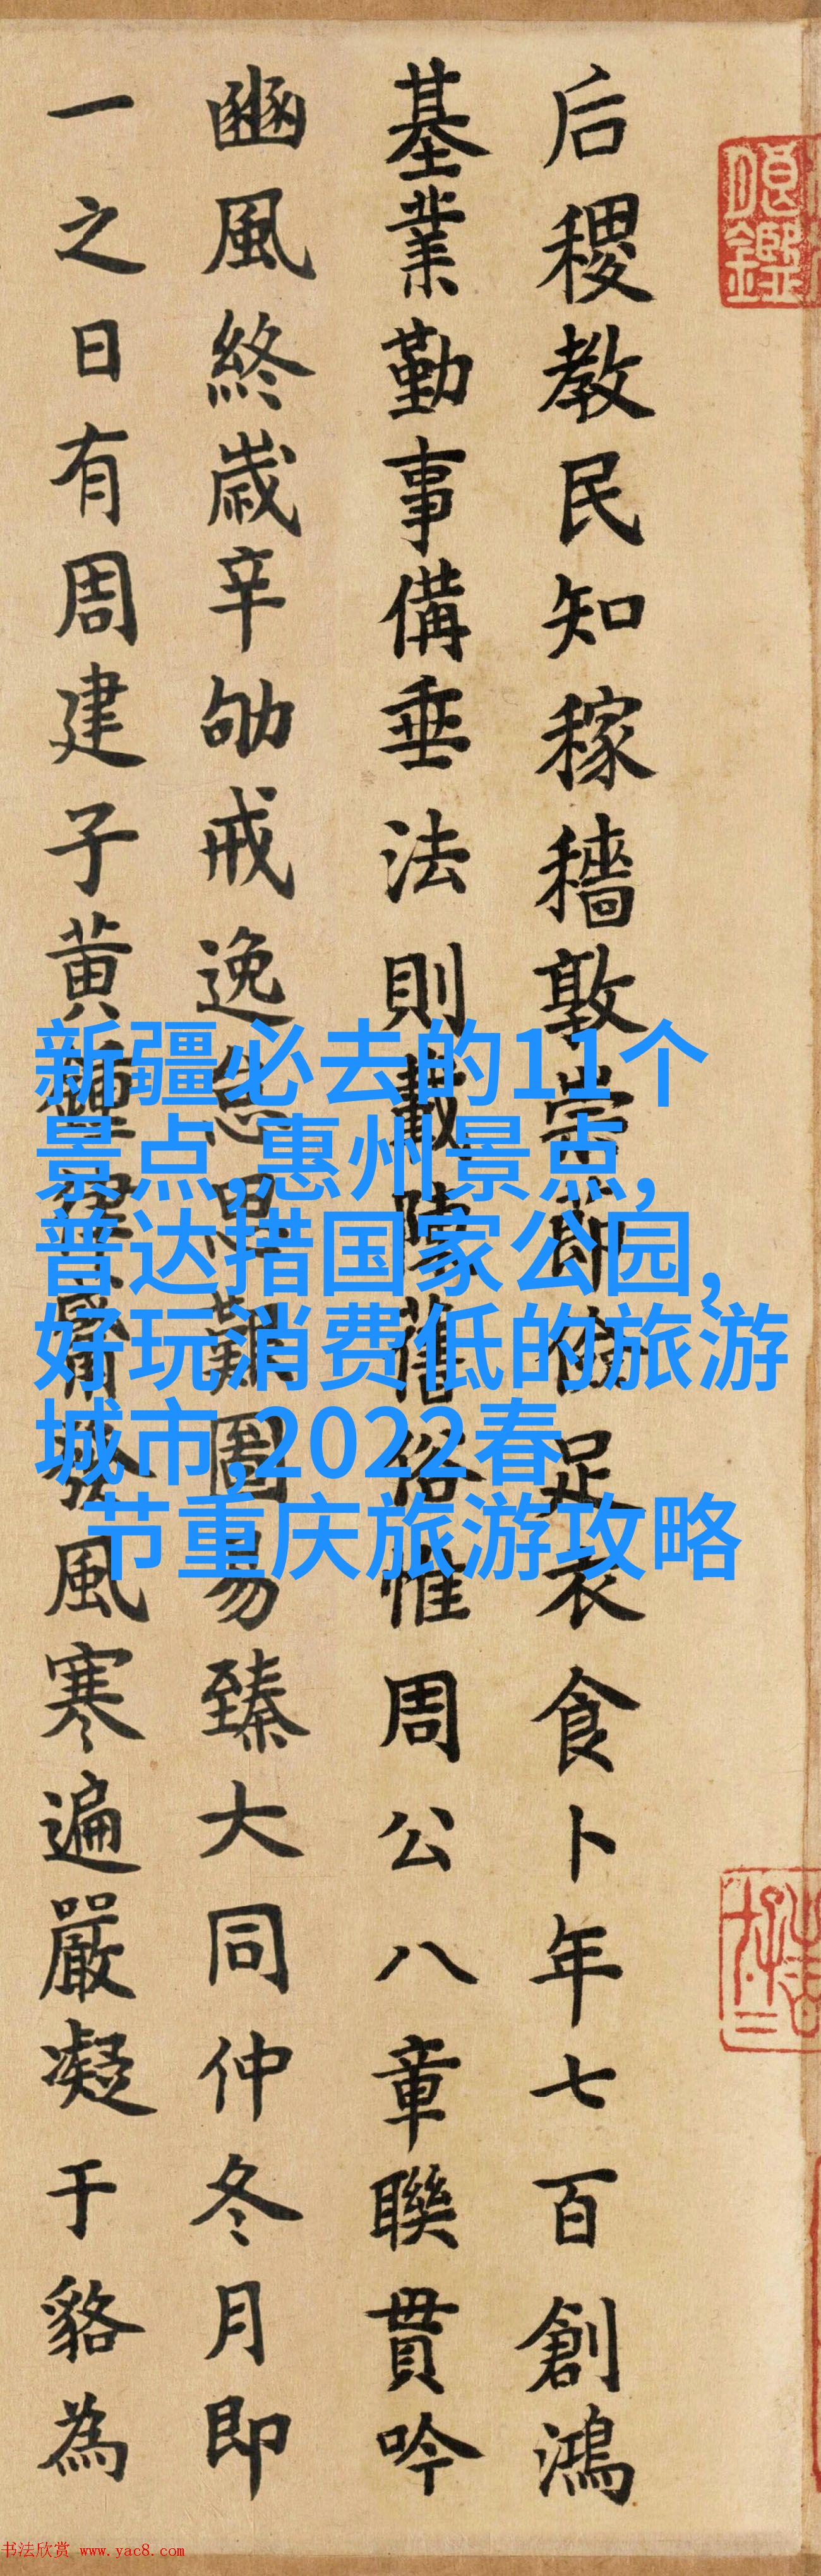 后稷教民知稼穡敦崇節儉足衣食卜年七百創鴻
基業勤事備垂法則載陳舊俗惟周公八章聯貫吟
豳風終歲辛劬戒逸怠思艱圖易臻大同仲冬月即
一之日有周建子黃鍾律觱發風寒遍嚴凝于貉為
新疆必去的11个
景点,惠州景点,
普达措国家公园,
好玩消费低的旅游
城市,2022春
节重庆旅游攻略
书法欣赏 www.yac8.com